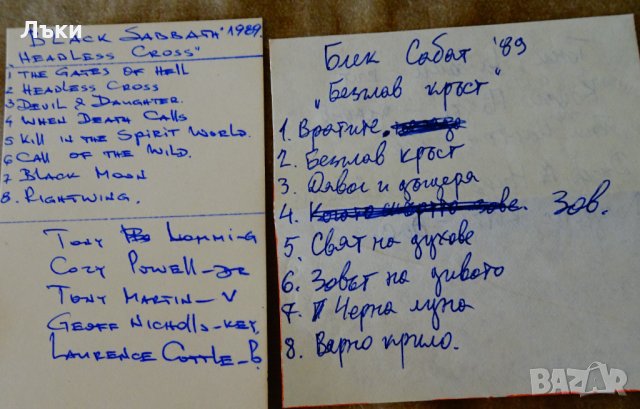 Лъки
BLACK SABBATH "1989
"HEADLESS CROSS"
1 THE GATES OF HELL
2 HEADLESS CROSS
3 DEVIL & DAUGHTER.
4 WHEN DEATH CALLS
5 KILL IN THE SPIRIT WORLD.
6 CALL OF THE WILD.
7 BLACK MOON
8. RIGHTWING.
TONY IOMMI-G
COZY POWELL-DR
TONY MARTIN-V
GEOFF NICHOLLS-KEY.
LAURENCE COTTLE-B.
Блек Сабат '89
„Безглав кръст"
1. Вратите.
2. Безглав кръст
3. Дявол и дъщеря
4. Когато смъртта зове. Зов.
5. Свят на духове
6. Зовът на дивото
7. Черна луна
8. Варно крило.
BAZAR.bg